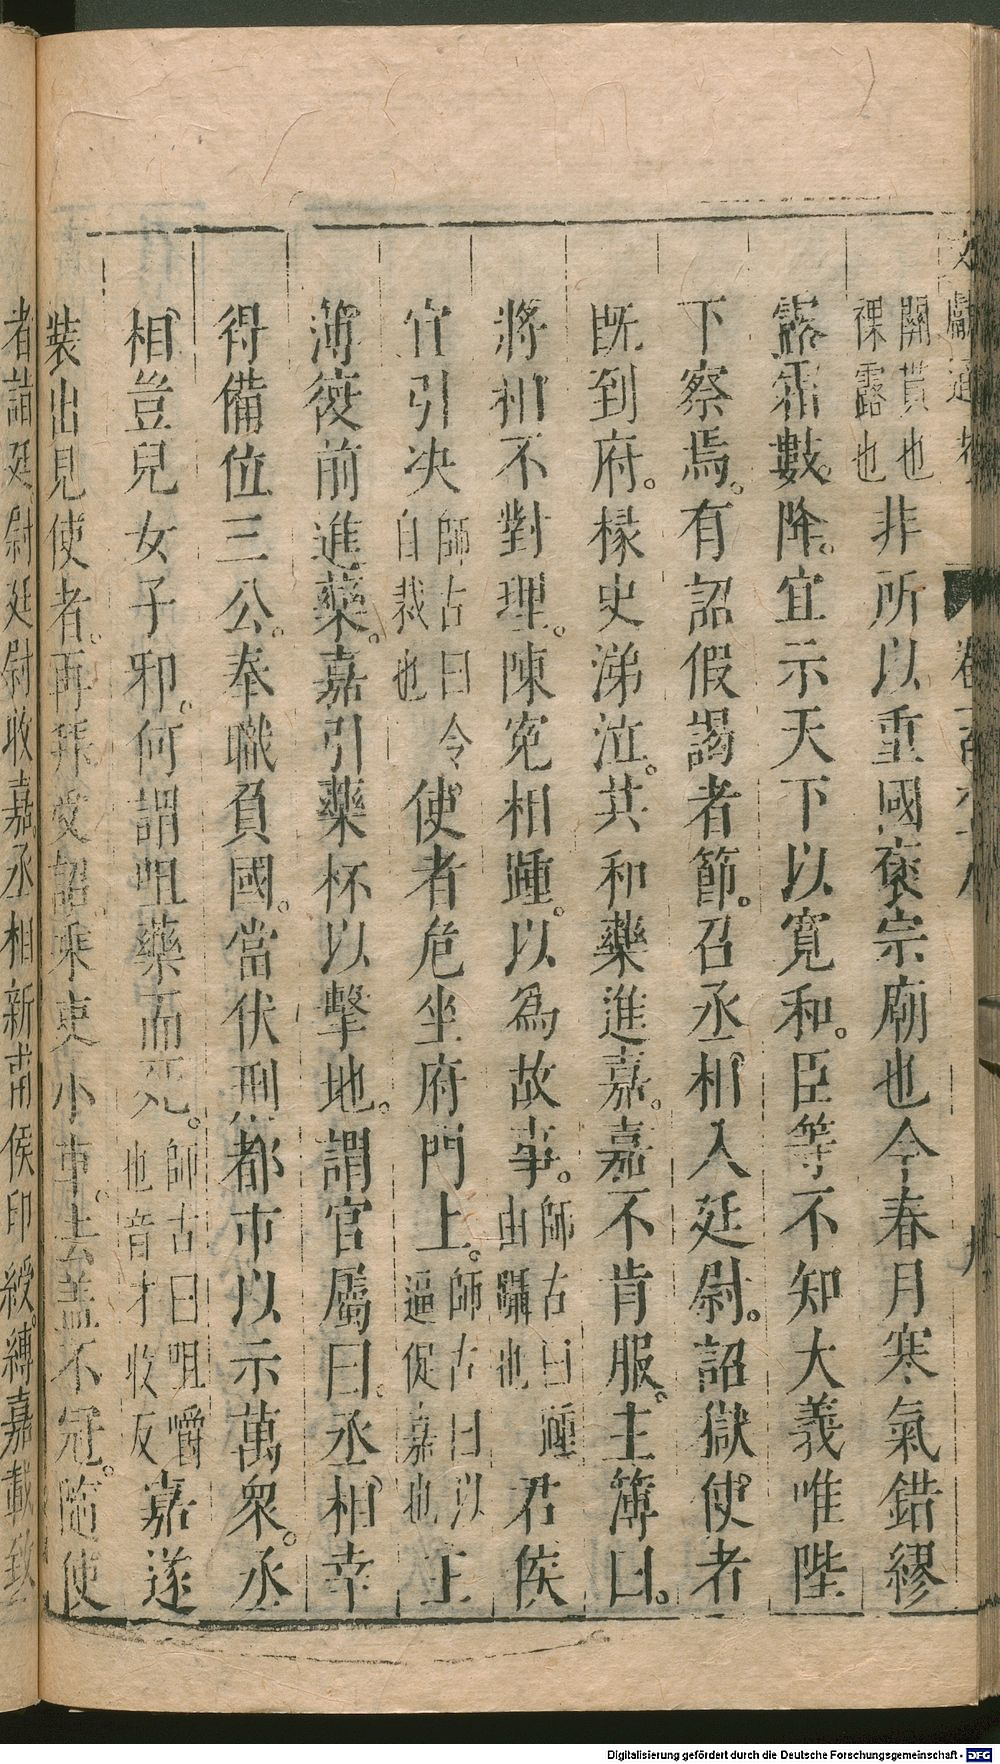 關貫也祼露也非所以重國褒宗廟也今春月寒氣錯繆
霜露數降宜示天下以寬和臣等不知大義唯陛
下察焉有詔假謁者節召丞相入廷尉詔獄使者
既到府掾史涕泣共和藥進嘉嘉不肯服主簿曰
將相不對理陳冤相踵以為故事師古曰踵由躡也君侯
宜引决師古曰令自裁也使者危坐府門上師古曰以逼促嘉也主
簿復前進藥嘉引藥杯以擊地謂官屬曰丞相幸
得備位三公奉職負國當伏刑都市以示萬衆丞
相豈兒女子邪何謂咀藥而死師古曰咀嚼也音才收反嘉遂
裝出見使者再拜受詔乘吏小車去蓋不冠隨使
者詣廷尉廷尉收嘉丞相新甫侯印綬縛嘉載致
Digitalisierung gefördert durch die Deutsche Forschungsgemeinschaft - DFG